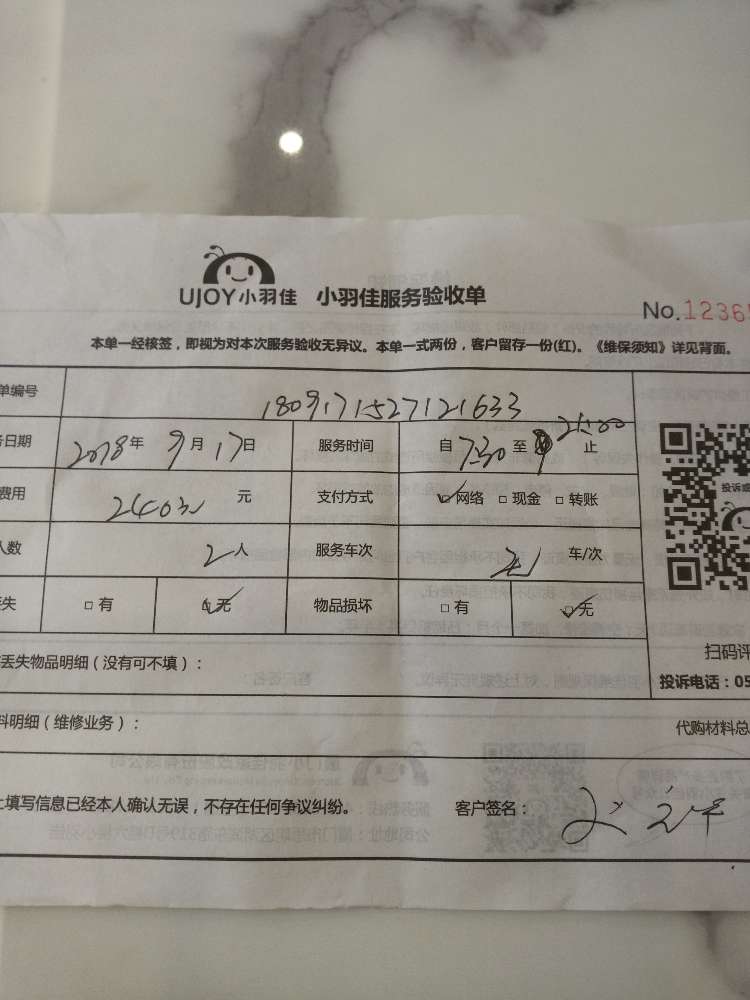 UJOY小羽佳 小羽佳服务验收单
No.1236
本单一经核签，即视为对本次服务验收无异议。本单一式两份，客户留存一份(红)。《维保须知》详见背面。
单编号 1809171527121633
日期 2018年 9月 17日 服务时间 自 7:30 至 21:00 止
费用 元 支付方式 ☑网络 □现金 □转账
人数 2人 服务车次 车/次
失 □有 ☑无 物品损坏 □有 ☑无
丢失物品明细（没有可不填）：
扫码评
投诉电话：05
料明细（维修业务）：
代购材料总
上填写信息已经本人确认无误，不存在任何争议纠纷。 客户签名：